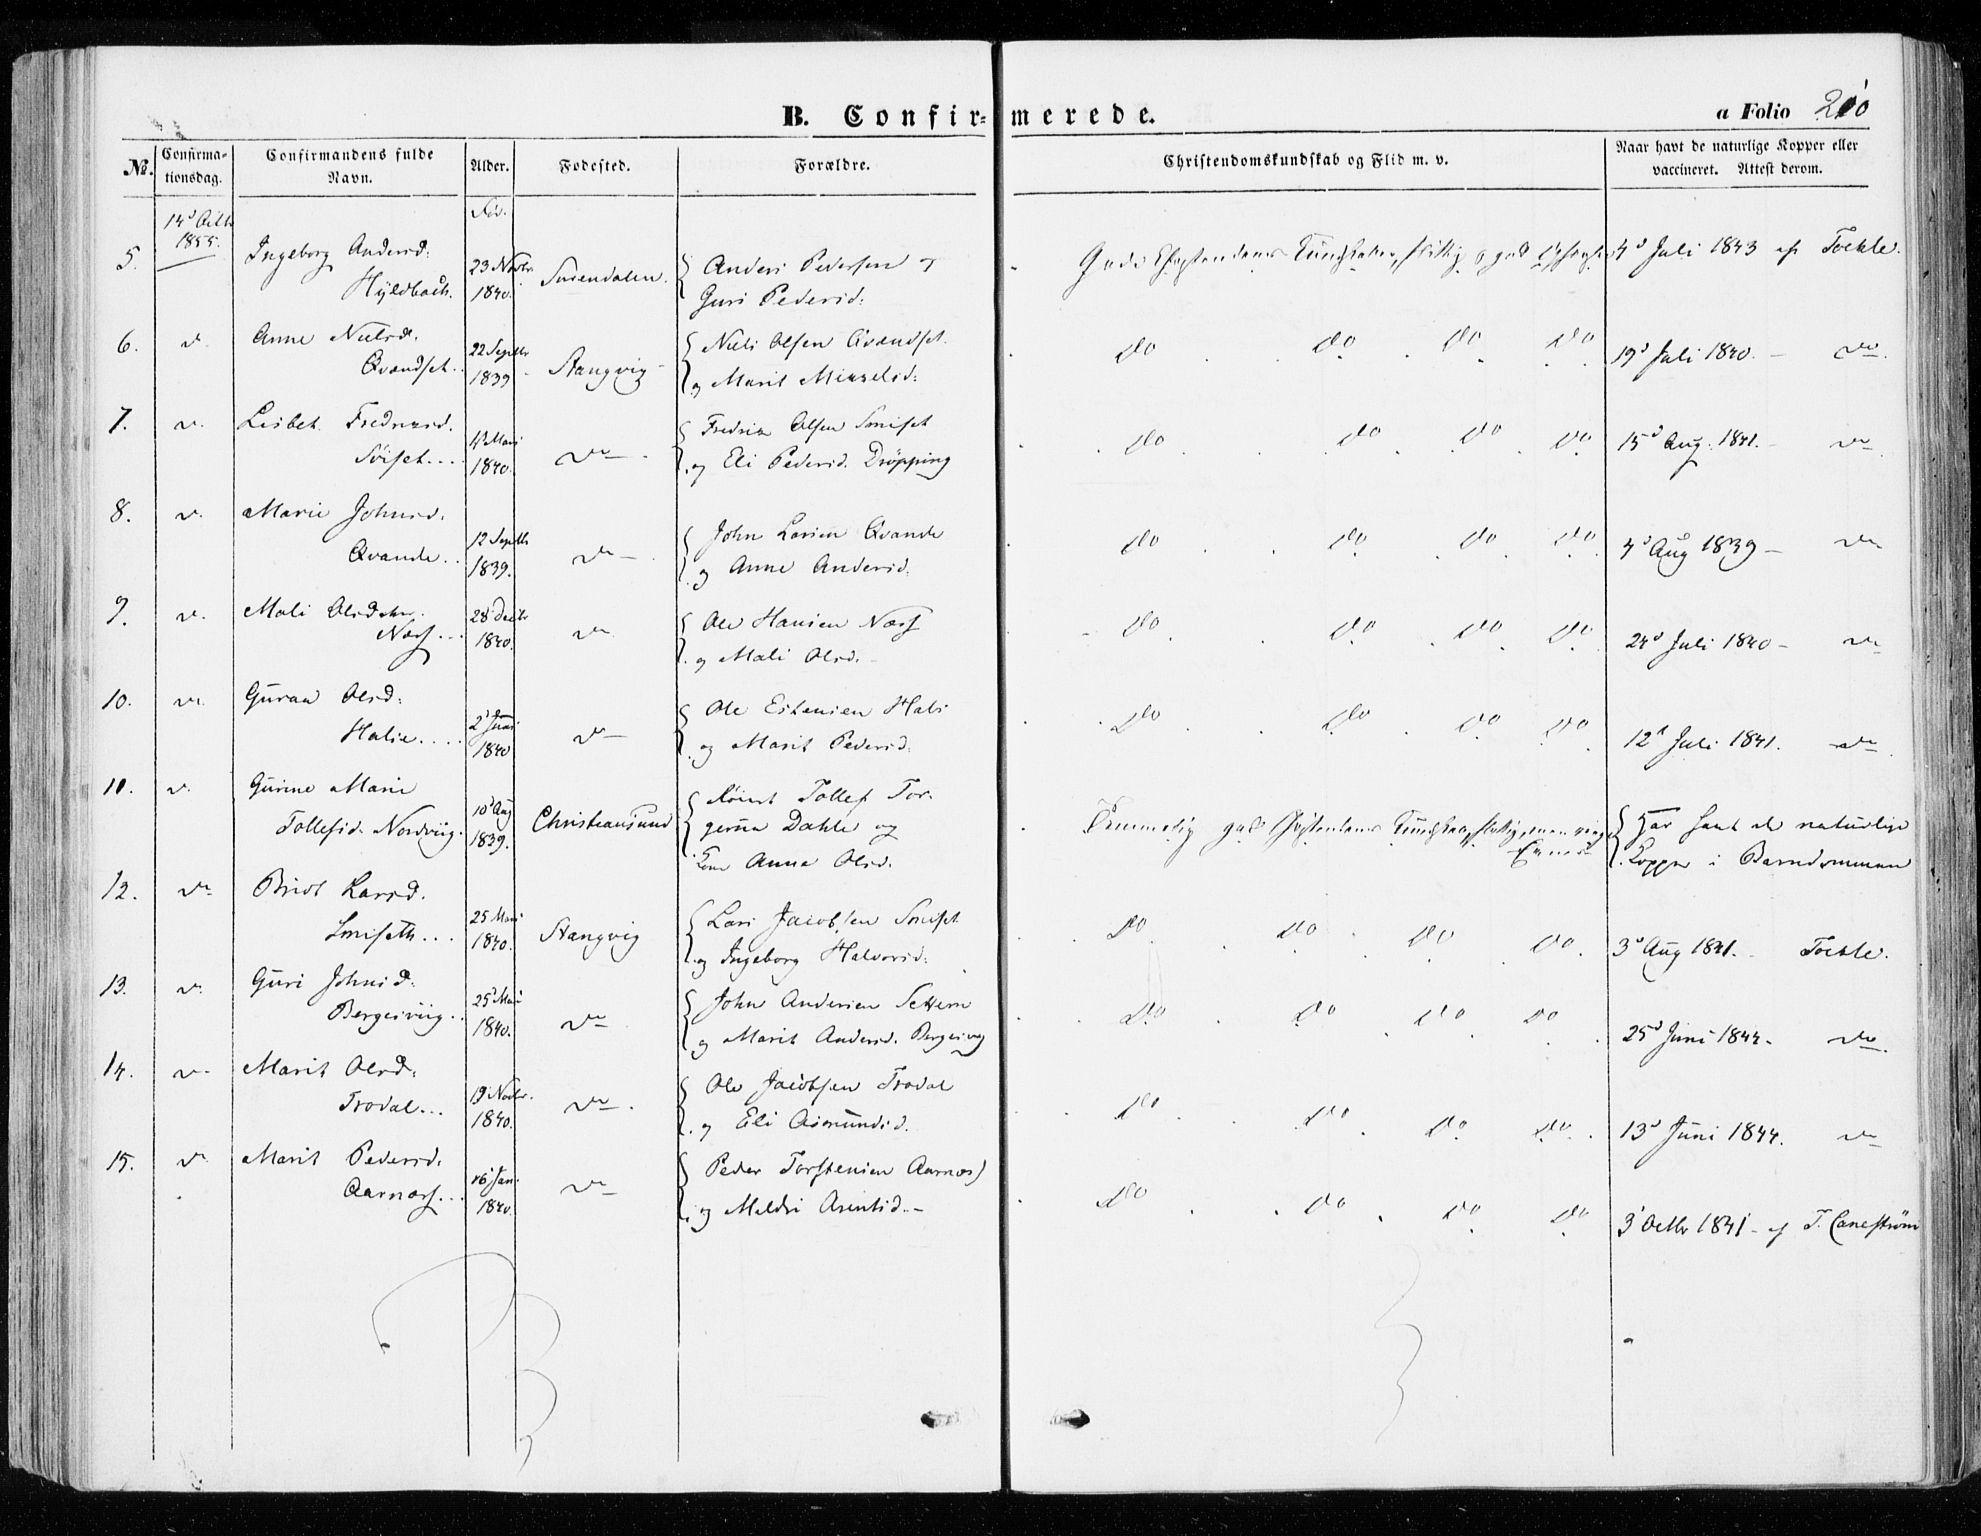 B. Confirmerede.
a Folio 210
No.
Confirmationsdag.
Confirmandens fulde Navn.
Alder.
Fødested.
Forældre.
Christendomskundskab og Flid m. v.
Naar havt de naturlige Kopper eller vaccineret. Attest derom.
14d Octbr 1855.
5.
Ingeborg Andersd:
Hyldbach.
23 Novbr 1840.
Surendalen.
Anders Pedersen og
Guri Pedersd:
4d Juli 1843 af Tockle.
6.
do
Anne Nielsd.
Qvandset..
22 Septbr 1839
Stangvig
Niels Olsen Qvandset
og Marit Mikkelsd:
do do do do
19d Juli 1840. — do.
7.
do
Lisbet Fredriksd.
Søiset...
1840.
do
Fredrik Olsen
og Eli Pedersd. Drøpping
do do do do
15d Aug. 1841. — do
8.
do
Marie Johnsd.
Qvande..
12 Septbr 1839.
do
John Larsen Qvande
og Anne Andersd.
do do do do
4d Aug 1839 — do
9.
do
Mali Olsdatter.
Næss...
28 Decbr 1840.
do
Ole Hansen Næss
og Mali Olsd.
do do do do
24d Juli 1840 — do
10.
do
Guraa Olsd:
Halse....
2d Juni 1840
do
Ole Estensen Halse
og Marit Pedersd.
do do do do
12d Juli 1841. do
11.
do
Gurine Marie
Tollefsd. Nordviig.
10d Aug 1839.
Christiansund
Tollef Tor-
Dahle og
Kone Anne Olsd.
Temmelig god
Har havt de naturlige
Kopper i Barndommen
12.
do
Brit Larsd.
1840.
Stangvig
Lars Jacobsen
og Ingeborg Halvorsd:
do do do do
3d Aug 1841. Tockle.
13.
do
Guri Johnsd.
Bergesviig..
1840.
do
John Andersen Settem
og Marit Andersd. Bergesvig
do do do do
25d Juni 1844. do
14.
do
Marit Olsd:
Trodal...
19 Novbr. 1840.
do
Ole Jacobsen Trodal
og Eli Asmundsd.
do do do do
13d Juni 1844. do
15.
do
Marit Pedersd.
Aarnæss...
16 Jan. 1840.
do
Peder Torstensen Aarnæs
og Meldri Arentsd.
do do do do
3d Octbr 1841 — af T. Canestrøm